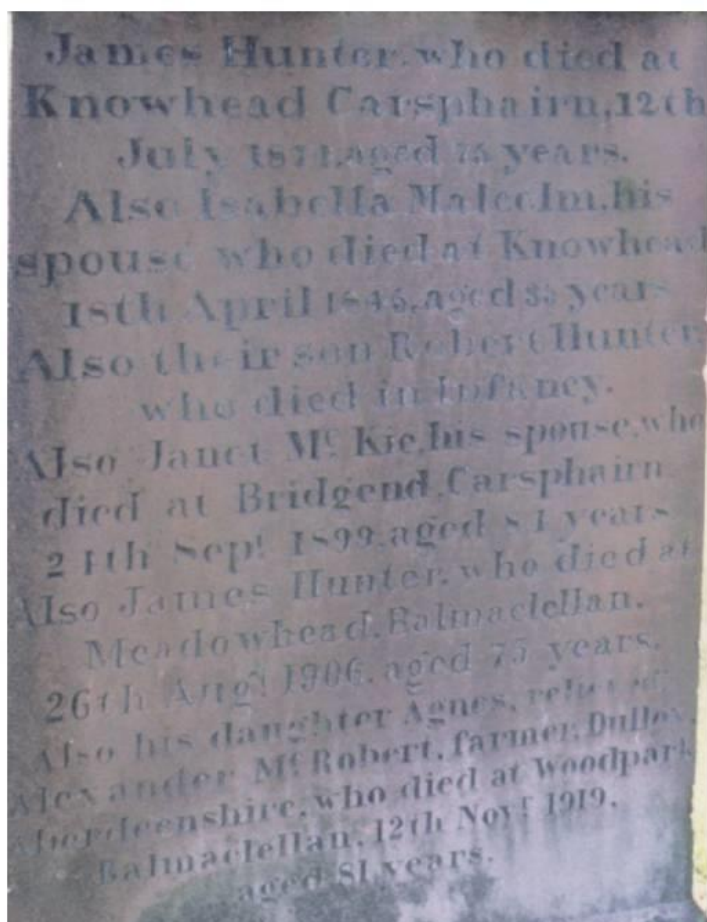 James Hunter, who died at
Knowhead Carsphairn, 12th
July 1871, aged 75 years.
Also Isabella Malcolm, his
spouse who died at Knowhead
18th April 1846, aged 35 years
Also their son Robert Hunter,
who died in Infancy.
Also Janet Mc Kie, his spouse, who
died at Bridgend, Carsphairn
24th Sept. 1899, aged 81 years
Also James Hunter, who died at
Meadowhead, Balmaclellan,
26th Augt. 1906, aged 75 years.
Also his daughter Agnes, relict of
Alexander Mc Robert, farmer,
Aberdeenshire, who died at Woodpark
Balmaclellan, 12th Novr. 1919,
aged 81 years.